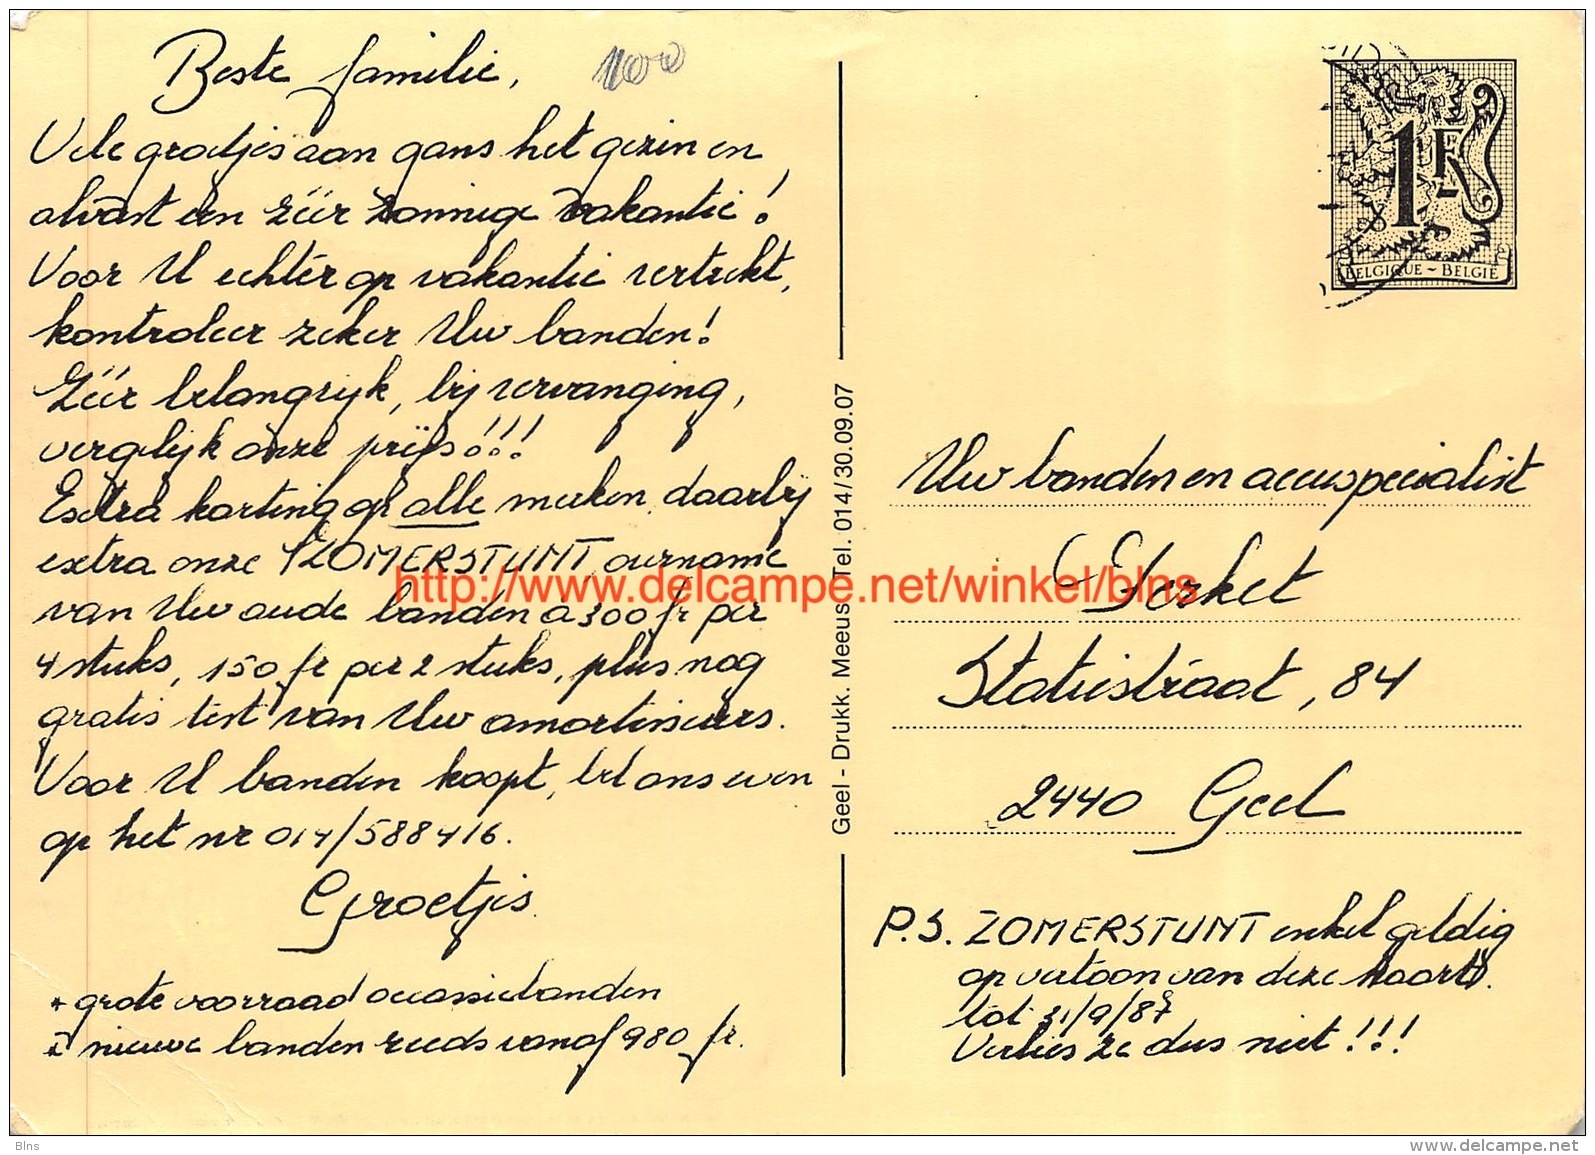 Beste familie,
1100
Vele groetjes aan gans het gezin en
alvast een zéér zonnige vakantie!
Voor U echter op vakantie vertrekt,
kontroleer zeker Uw banden!
Zéér belangrijk, bij vervanging,
vergelijk onze prijs!!!
Extra korting op alle merken, daarbij
extra onze ZOMERSTUNT, overname
van Uw oude banden à 300 fr per
4 stuks, 150 fr per 2 stuks, plus nog
gratis test van Uw amortisseurs.
Voor U banden koopt, bel ons even
op het nr 014/588416.
Groetjes
* grote voorraad occassiebanden
* nieuwe banden reeds vanaf 980 fr.
Geel - Drukk. Meeus Tel. 014/30.09.07
1F
BELGIQUE ~ BELGIË
Uw banden en accuspecialist
Ferket
Statiestraat, 84
2440 Geel
P.S. ZOMERSTUNT enkel geldig
op vertoon van deze kaart.
tot 31/9/87
Verlies ze dus niet!!!
http://www.delcampe.net/winkel/blns
Blns
www.delcampe.net